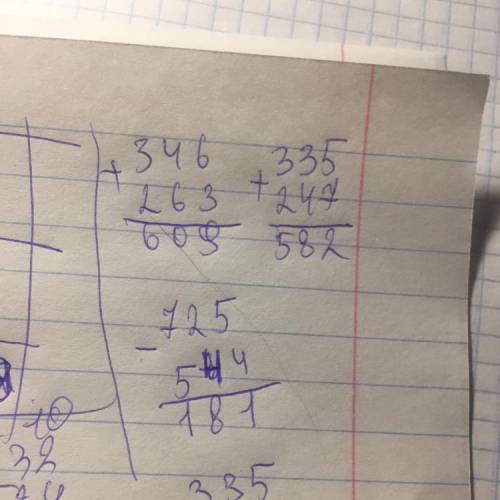 + 346
263
609
+ 335
247
582
- 725
544
181
10
32
335